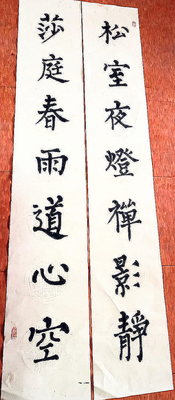 松室夜燈禪影靜
莎庭春雨道心空